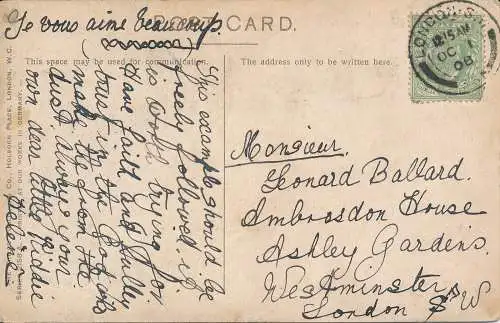 Je vous aime beaucoup.
POST CARD.
This space may be used for communication.
The address only to be written here.
LONDON. S.W
12.15 AM
OC
08
This example should be
freely followed. it
is worth trying for
Have faith and
bust in the Cob
make the from the
dust. always your
own dear little Kiddie
Helene
Monsieur.
Leonard Ballard.
Ambrosdon House
Ashley Gardens.
Westminster
London S.W
CO., HOLBORN PLACE, LONDON, W.C.
AT OUR WORKS IN GERMANY